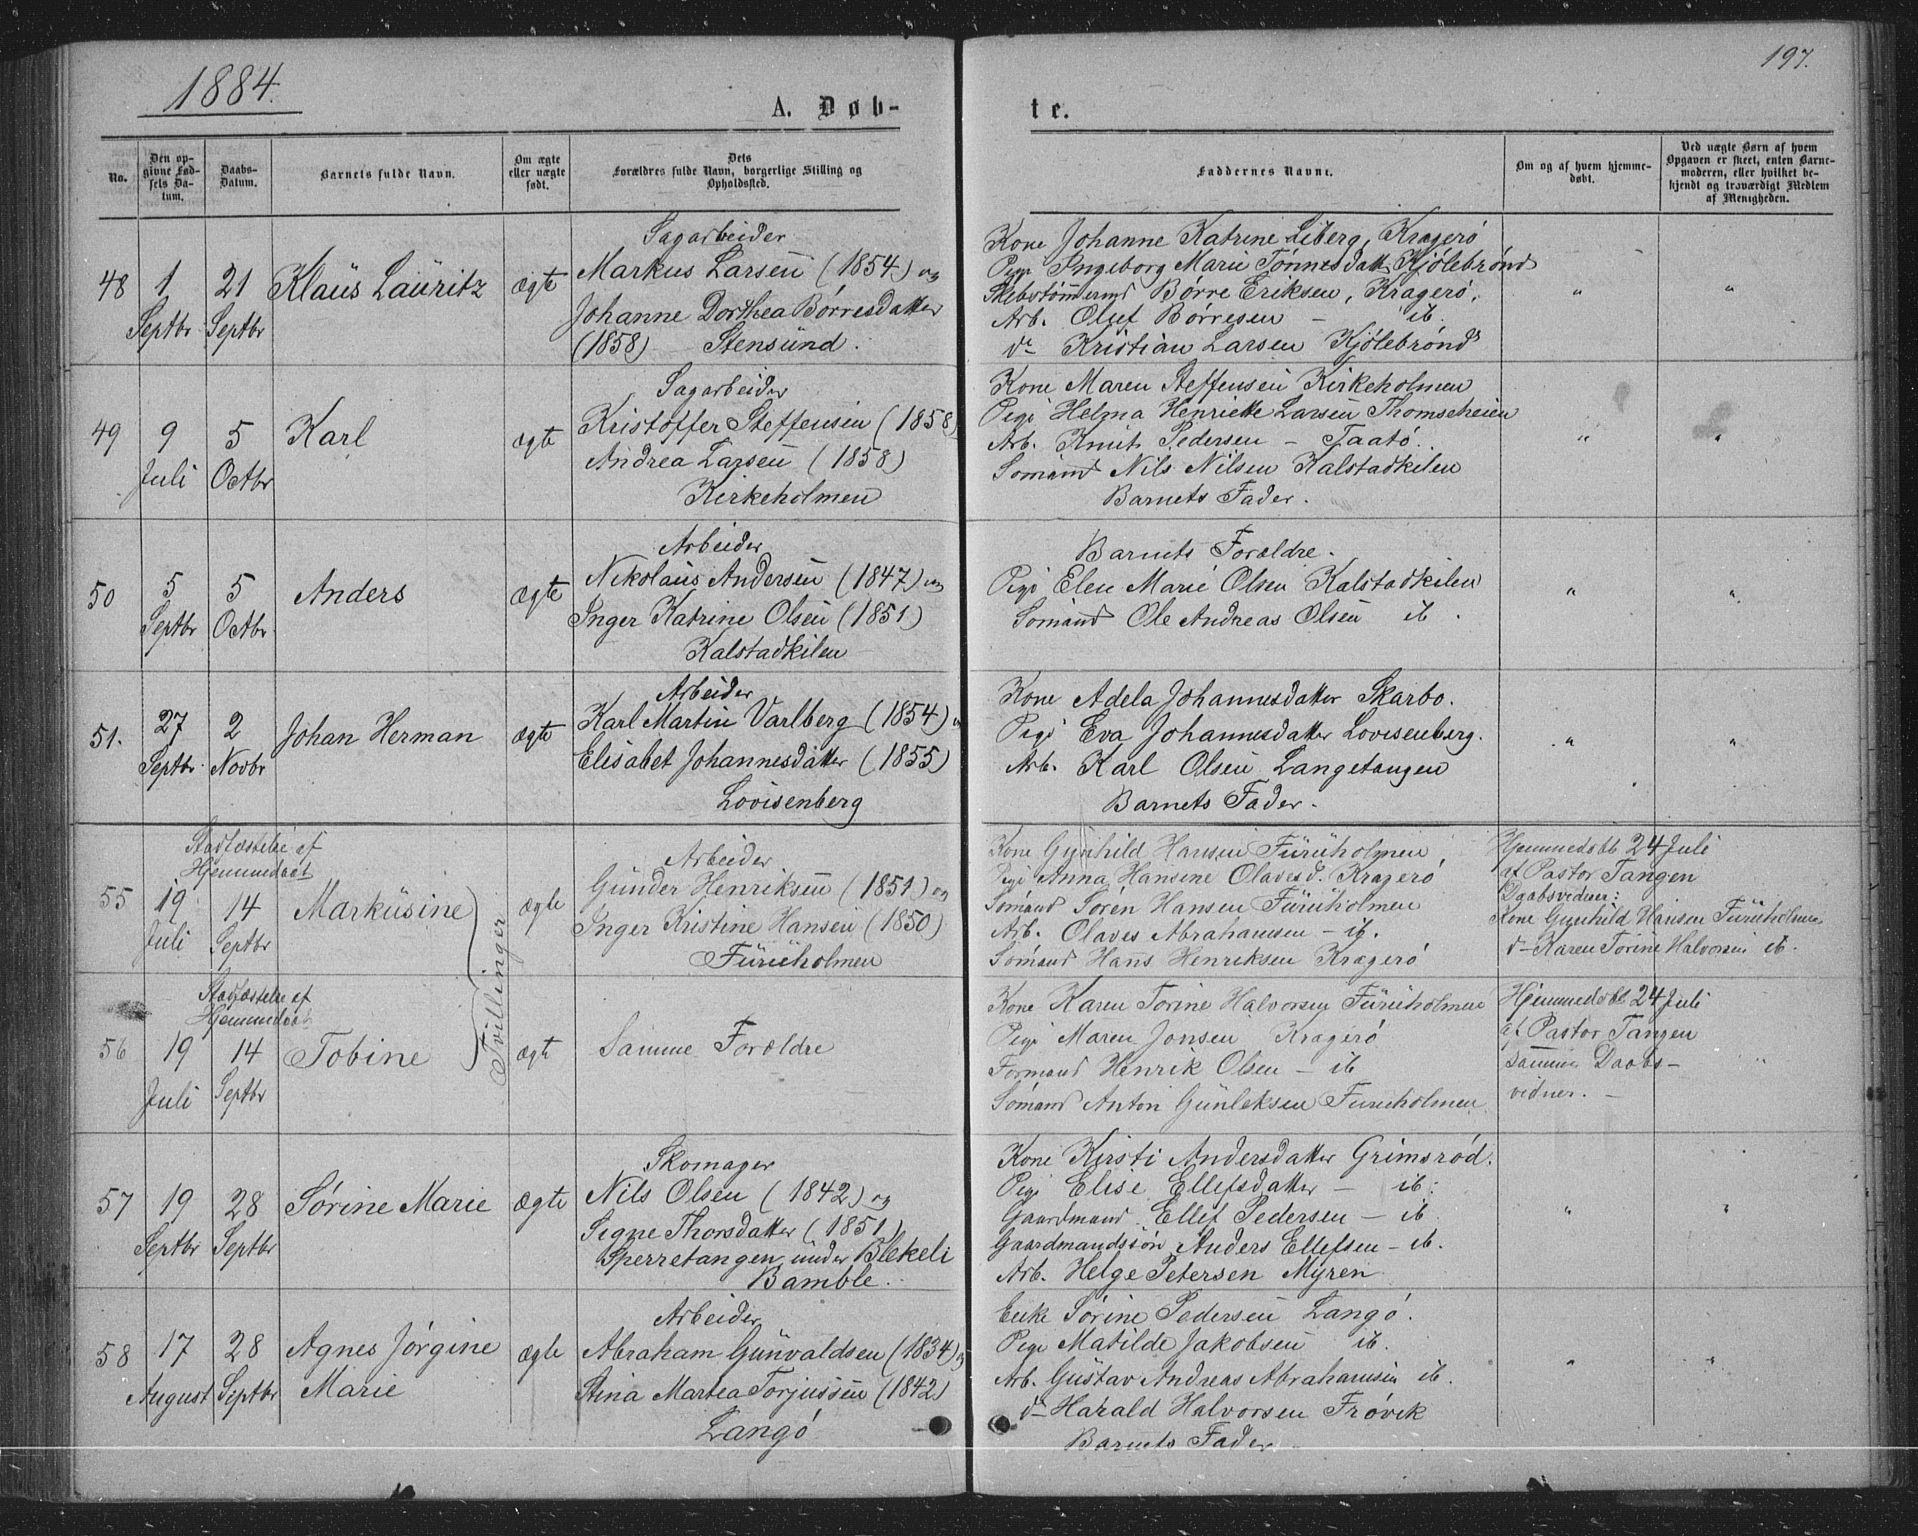 1884.
197.
A. Døb-
te.
No.
Den op-
givne Fød-
sels Da-
tum.
Daabs-
Datum.
Barnets fulde Navn.
Om ægte
eller uægte
født.
Dets
Forældres fulde Navn, borgerlige Stilling og
Opholdssted.
Faddernes Navne.
Om og af hvem hjemme-
døbt.
Ved uægte Børn af hvem
Opgaven er skeet, enten Barne-
moderen, eller hvilket be-
kjendt og troværdigt Medlem
af Menigheden.
48
1
Septbr
21
Septbr
Klaus Lauritz
ægte
Sagarbeider
Markus Larsen (1854) og
Johanne Dorthea Børresdatter
(1858) Stensund.
Kone Johanne Katrine Liberg, Kragerø
Pige Ingeborg Marie Tønnesdatt, Kjølebrønd
Skibstømmermd Børre Eriksen, Kragerø.
Arb. Oluf Børresen — ib.
do Kristian Larsen Kjølebrønd
"
"
49
9
Juli
5
Octbr
Karl
ægte
Sagarbeider
Kristoffer Steffensen (1858)
Andrea Larsen (1858)
Kirkeholmen
Kone Maren Steffensen Kirkeholmen
Pige Helma Henriette Larsen Thomseheien
Arb. Knut Pedersen — Taatø.
Sømand Nils Nilsen Kalstadkilen
Barnets Fader.
"
"
50
5
Septbr
5
Octbr
Anders
ægte
Arbeider
Nikolaus Andersen (1847) og
Inger Katrine Olsen (1851)
Kalstadkilen
Barnets Forældre.
Pige Elen Marie Olsen Kalstadkilen
Sømand Ole Andreas Olsen ib.
"
"
51.
27
Septbr
2
Novbr
Johan Herman
ægte
Arbeider
Karl Martin Varlberg (1854) o
Elisabet Johannesdatter (1855)
Lovisenberg
Kone Adela Johannesdatter Skarbo.
Pige Eva Johannesdatter Lovisenberg.
Arb. Karl Olsen Langetangen
Barnets Fader.
"
"
55
Stadfæstelse af
Hjemmedaab
19
Juli
14
Septbr
Markusine
Tvillinger
ægte
Arbeider
Gunder Henriksen (1851) og
Inger Kristine Hansen (1850)
Furuholmen
Kone Gunhild Hansen Furuholmen
Pige Anna Hansine Olavesd. Kragerø
Sømand Søren Hansen Furuholmen
Arb. Olaves Abrahamsen — ib.
Sømand Hans Henriksen Kragerø
Hjemmedøbt 24 Juli
af Pastor Tangen
Daabsvidner:
Kone Gunhild Hansen Furuholmen
do Karen Torine Halvorsen ib.
56
Stadfæstelse af
Hjemmedaab
19
Juli
14
Septbr
Tobine
ægte
Samme Forældre
Kone Karen Torine Halvorsen Furuholmen
Pige Maren Jonsen Kragerø
Formand Henrik Olsen — ib
Sømand Anton Gunleksen Furuholmen.
Hjemmedøbt 24 Juli
af Pastor Tangen
samme Daabs-
vidner. —
"
57
19
Septbr
28
Septbr
Sørine Marie
ægte
Skomager
Nils Olsen (1842) og
Signe Thorsdatter (1851)
Sperretangen under Blekeli
Bamble.
Kone Kirsti Andersdatter Grimsrød.
Pige Elise Ellefsdatter — ib:
Gaardmand Ellef Pedersen — ib
Gaardmandssøn Anders Ellefsen — ib.
Arb. Helge Petersen Myren
"
"
58
17
August
28
Septbr
Agnes Jørgine
Marie
ægte
Arbeider
Abraham Gunvaldsen (1834) og
Stina Martea Torjussen (1842)
Langø
Enke Sørine Pedersen Langø.
Pige Matilde Jakobsen ib.
Arb. Gustav Andreas Abrahamsen ib.
do Harald Halvorsen Frøvik
Barnets Fader
"
"